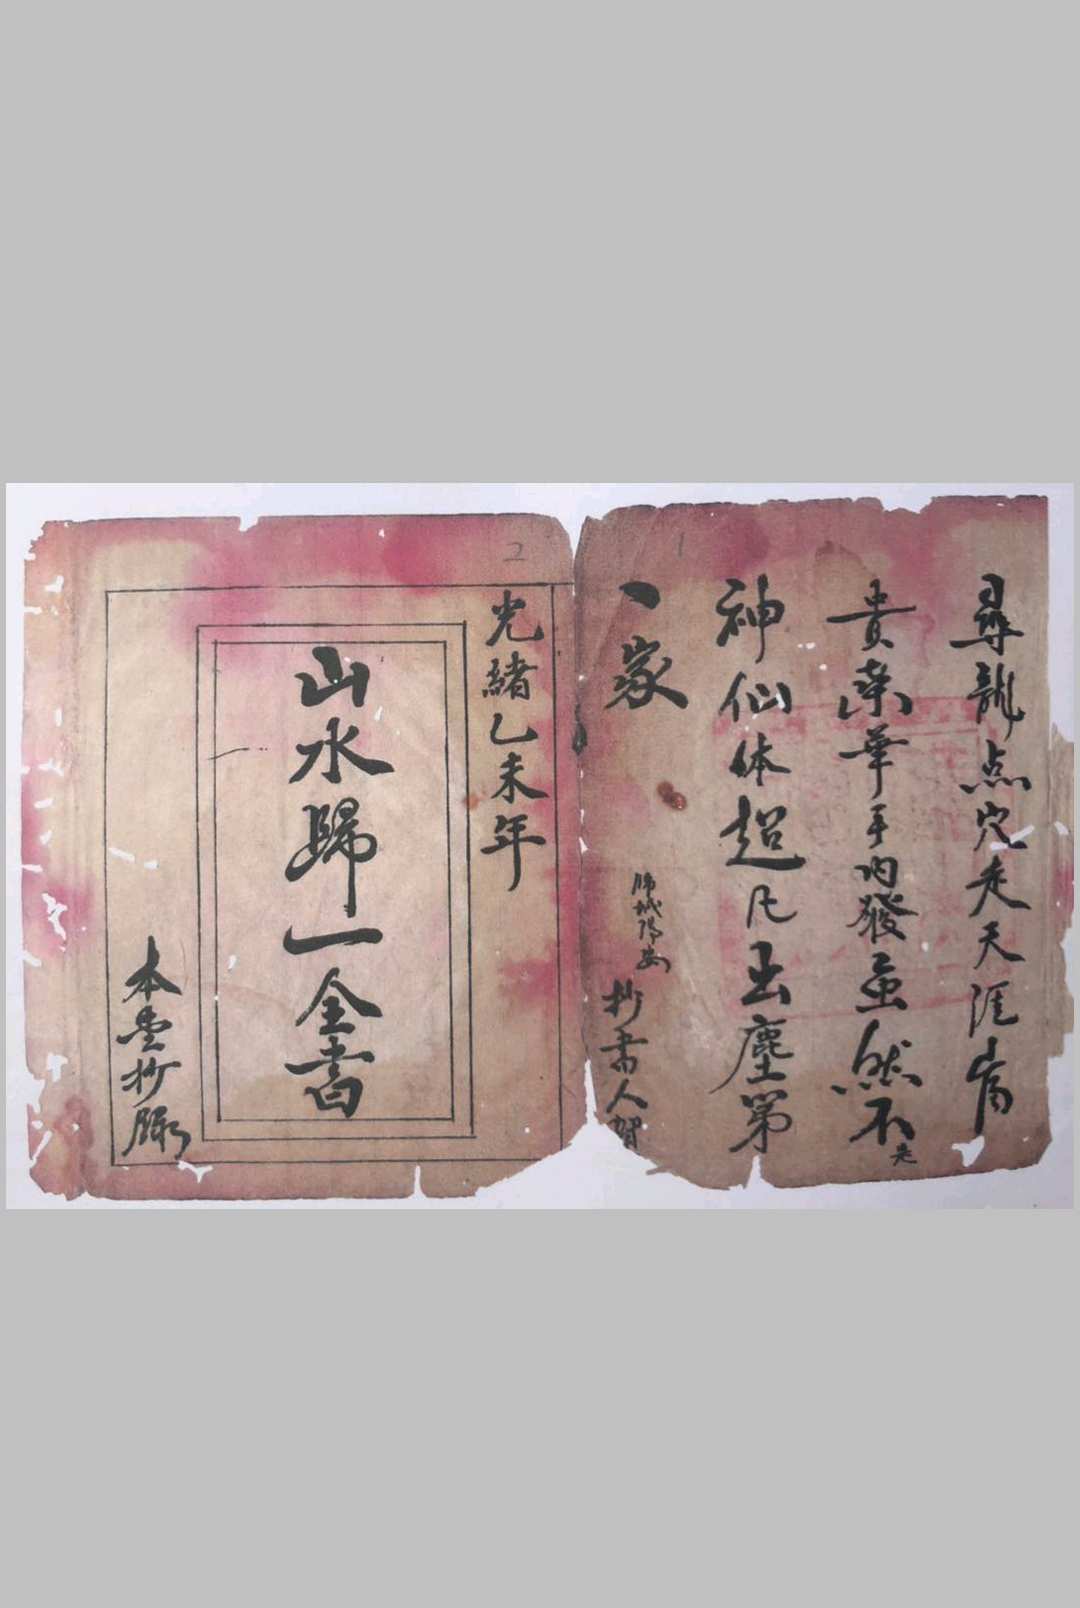 尋龍点穴走天涯富
貴榮華手內發虽然不是
神仙体超凡出塵第
一家
抄書人賀
光緒乙未年
山水歸一全書
本堂抄錄
1
2